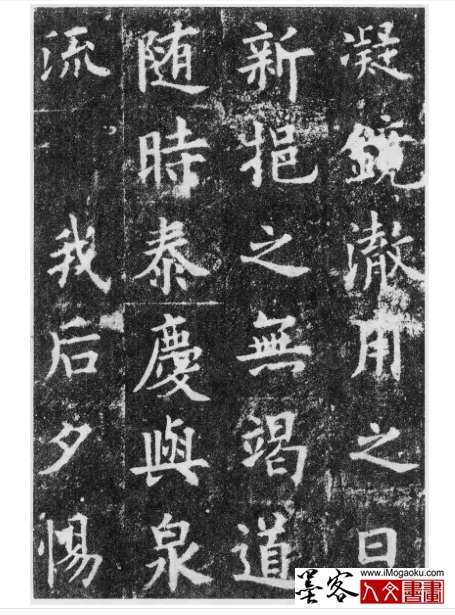 凝鏡澈用之日
新挹之無竭道
随時泰慶與泉
流 我后夕惕
墨客
www.iMogaoku.com
人文書畫